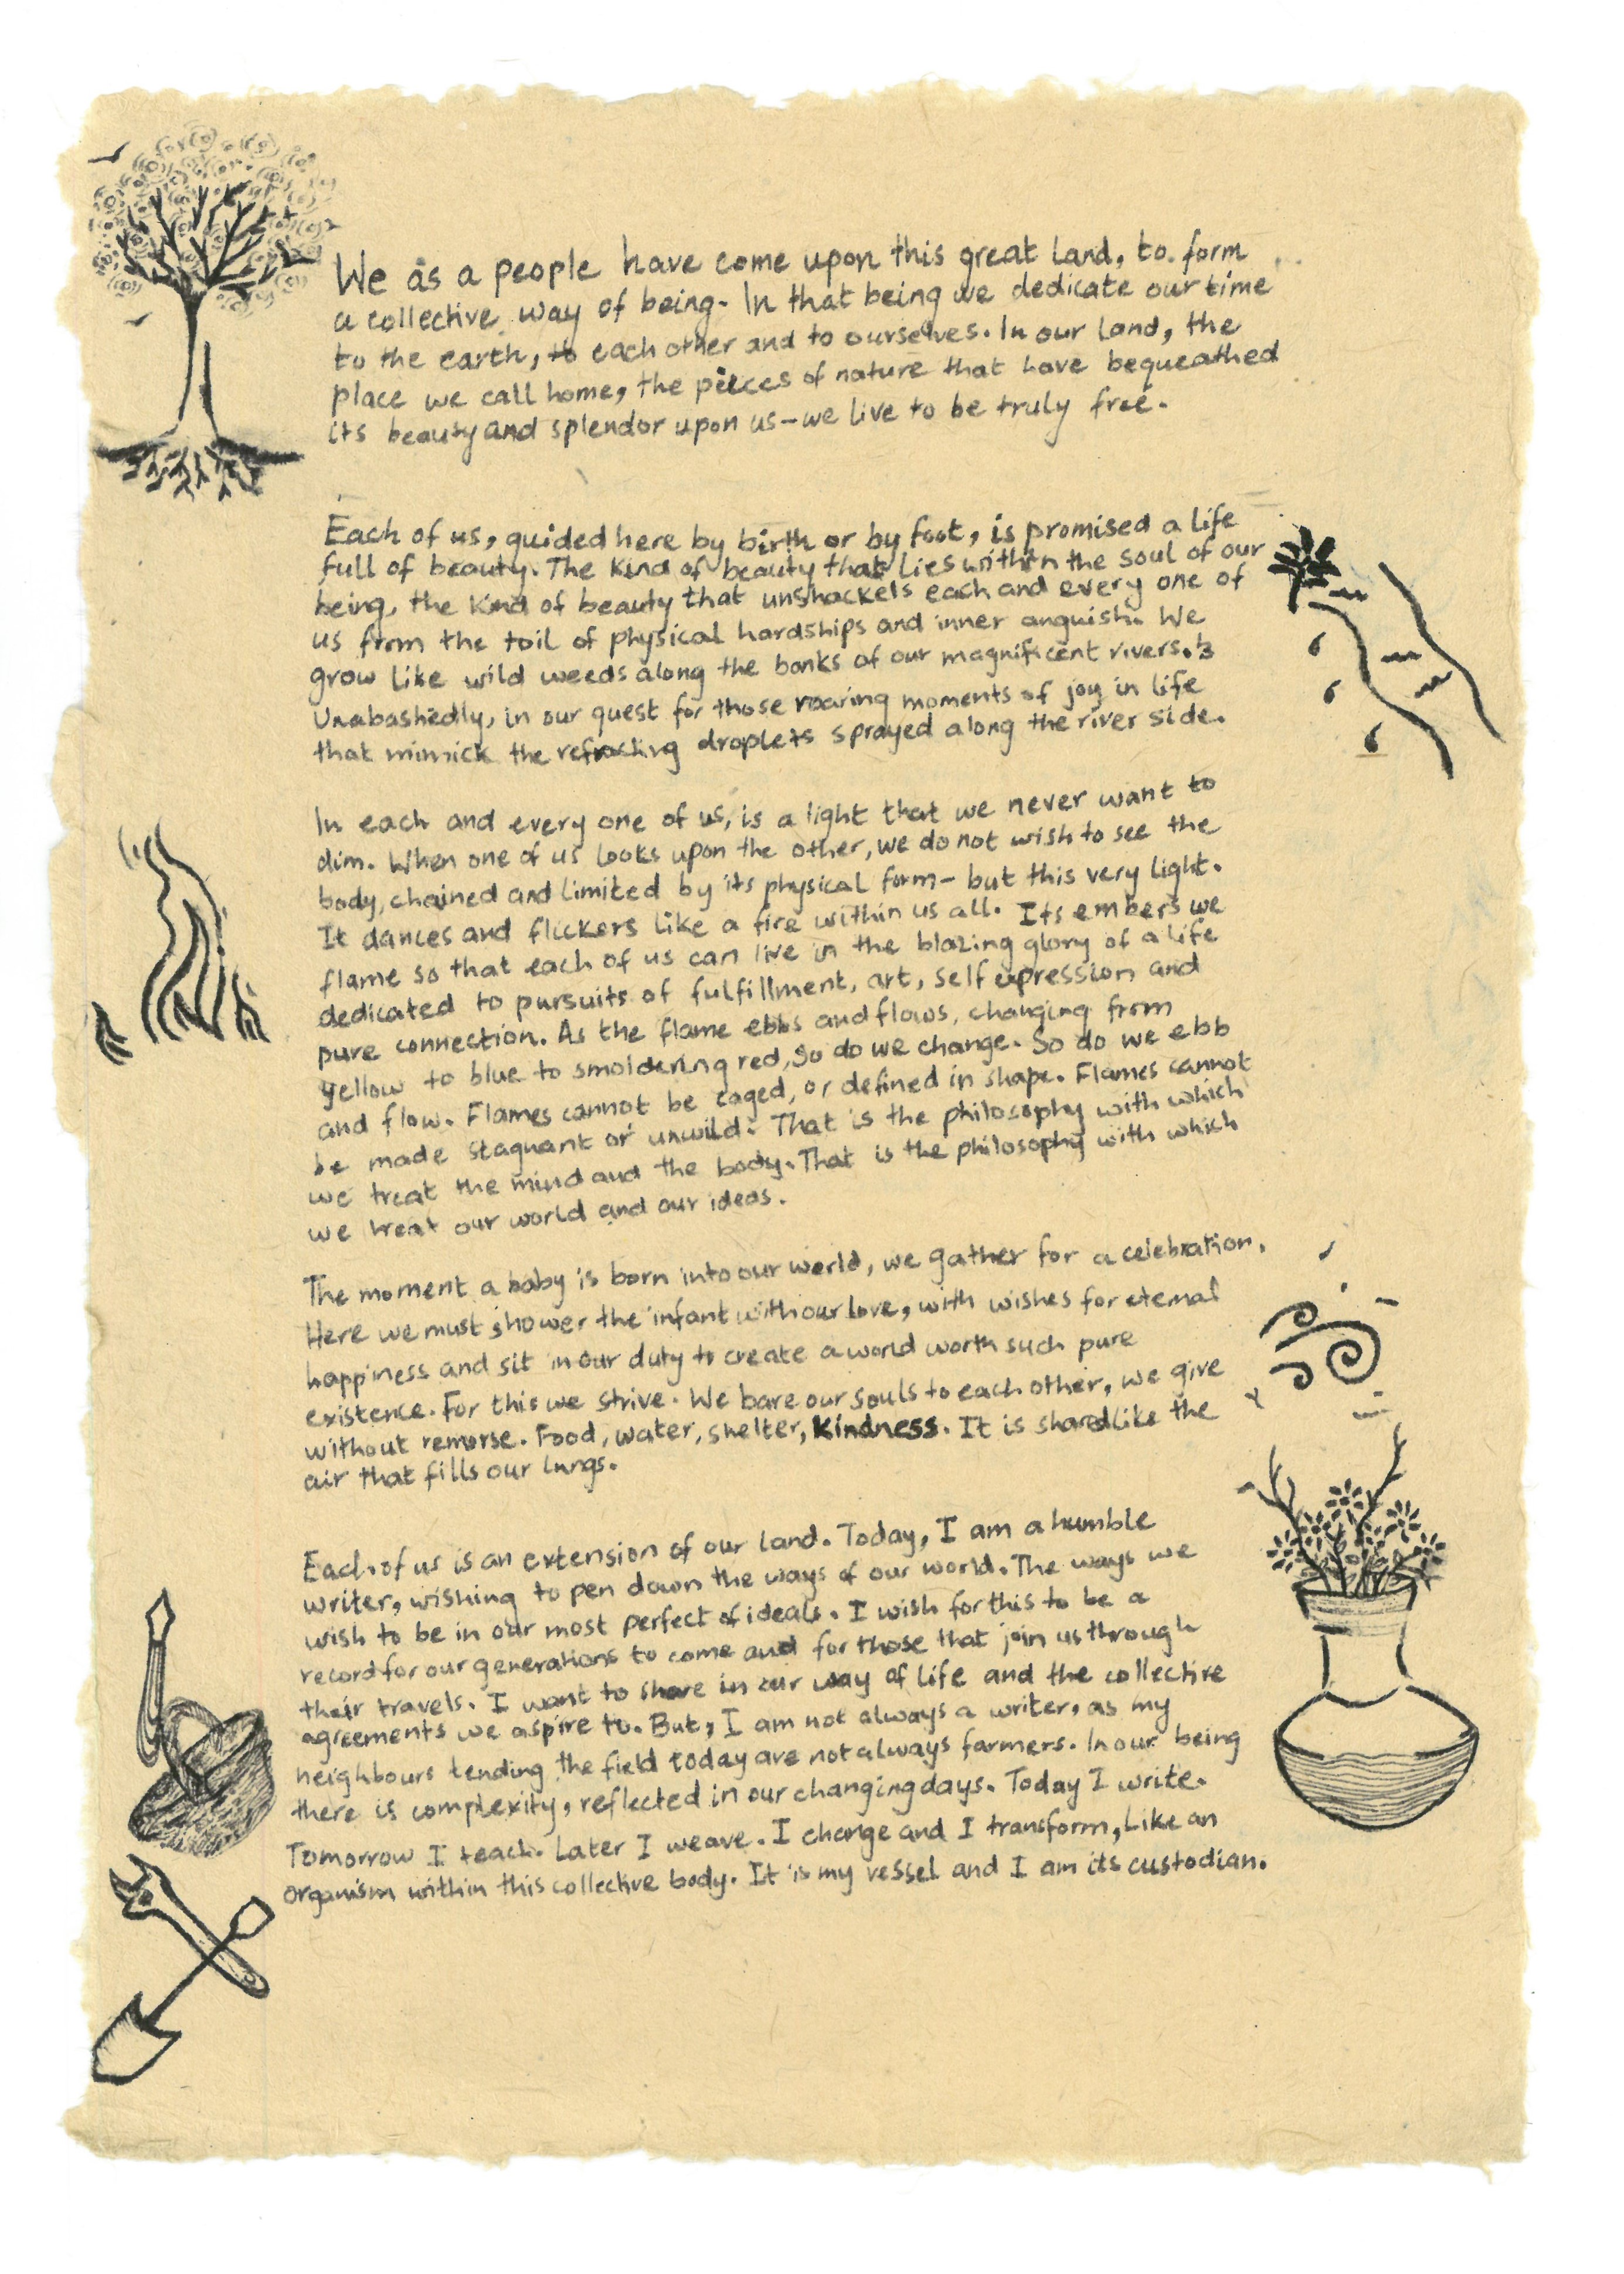 We as a people have come upon this great land, to form
a collective way of being. In that being we dedicate our time
to the earth, to each other and to ourselves. In our land, the
place we call home, the pieces of nature that have bequeathed
its beauty and splendor upon us - we live to be truly free.
Each of us, guided here by birth or by foot, is promised a life
full of beauty. The kind of beauty that lies within the soul of our
being, the kind of beauty that unshackels each and every one of
us from the toil of physical hardships and inner anguish. We
grow like wild weeds along the banks of our magnificent rivers.
Unabashedly, in our quest for those roaring moments of joy in life
that mimick the refracting droplets sprayed along the river side.
In each and every one of us, is a light that we never want to
dim. When one of us looks upon the other, we do not wish to see the
body, chained and limited by its physical form - but this very light.
It dances and flickers like a fire within us all. Its embers we
flame so that each of us can live in the blazing glory of a life
dedicated to pursuits of fulfillment, art, self expression and
pure connection. As the flame ebbs and flows, changing from
yellow to blue to smoldering red, so do we change. So do we ebb
and flow. Flames cannot be caged, or defined in shape. Flames cannot
be made stagnant or unwild. That is the philosophy with which
we treat the mind and the body. That is the philosophy with which
we treat our world and our ideas.
The moment a baby is born into our world, we gather for a celebration.
Here we must shower the infant with our love, with wishes for eternal
happiness and sit in our duty to create a world worth such pure
existence. For this we strive. We bare our souls to each other, we give
without remorse. Food, water, shelter, kindness. It is shared like the
air that fills our lungs.
Each of us is an extension of our land. Today, I am a humble
writer, wishing to pen down the ways of our world. The ways we
wish to be in our most perfect of ideals. I wish for this to be a
record for our generations to come and for those that join us through
their travels. I want to share in our way of life and the collective
agreements we aspire to. But, I am not always a writer, as my
neighbours tending the field today are not always farmers. In our being
there is complexity, reflected in our changing days. Today I write.
Tomorrow I teach. Later I weave. I change and I transform, like an
organism within this collective body. It is my vessel and I am its custodian.